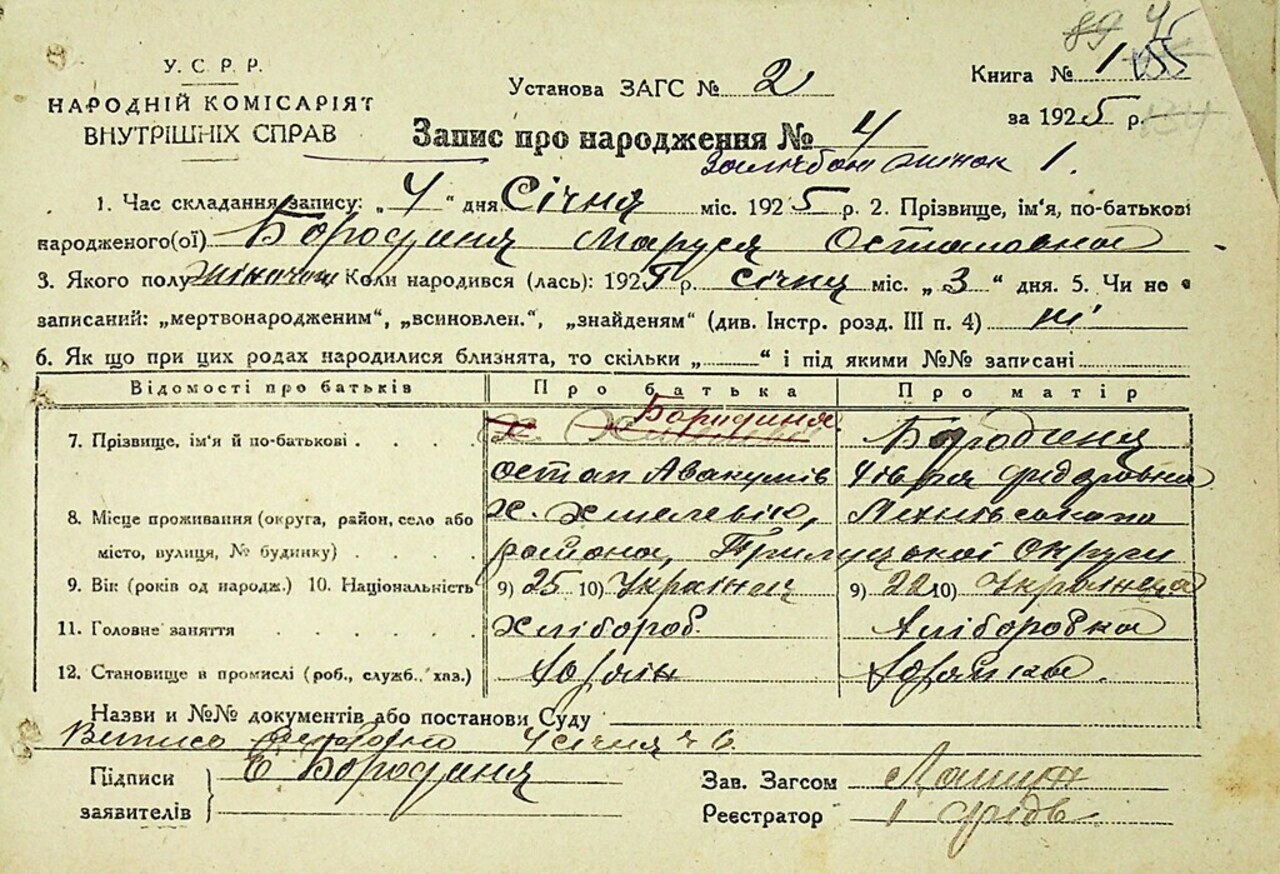 89 4
У. С. Р. Р.
НАРОДНІЙ КОМІСАРІЯТ
ВНУТРІШНІХ СПРАВ
Установа ЗАГС № 2
Книга № 1
за 1925 р.
Запис про народження № 4
жінок 1.
1. Час складання запису: „4“ дня Січня міс. 1925 р. 2. Прізвище, ім'я, по-батькові
народженого(ої) Бородиня Маруся Остаповна
3. Якого полу жіночого Коли народився (лась): 1925 р. січня міс. „3“ дня. 5. Чи не є
записаний: „мертвонародженим“, „всиновлен.“, „знайденям“ (див. Інстр. розд. III п. 4) ні
6. Як що при цих родах народилися близнята, то скільки „ “ і під якими №№ записані
Відомості про батьків Про батька Про матір
7. Прізвище, ім'я й по-батькові . . . . Бородиня Бородиня
Остап Авакумів Федоровна
8. Місце проживання (округа, район, село або х.
місто, вулиця, № будинку) . . . . района, Прилуцької Округи
9. Вік (років од народж.) 10. Національність 9) 25 10) Українец 9) 22 10) Українка
11. Головне заняття . . . . . Хлібороб. Хліборобка
12. Становище в промислі (роб., служб., хаз.)
Назви и №№ документів або постанови Суду
Випись 4 січня
Підписи Є Бородиня
заявителів
Зав. Загсом
Реєстратор